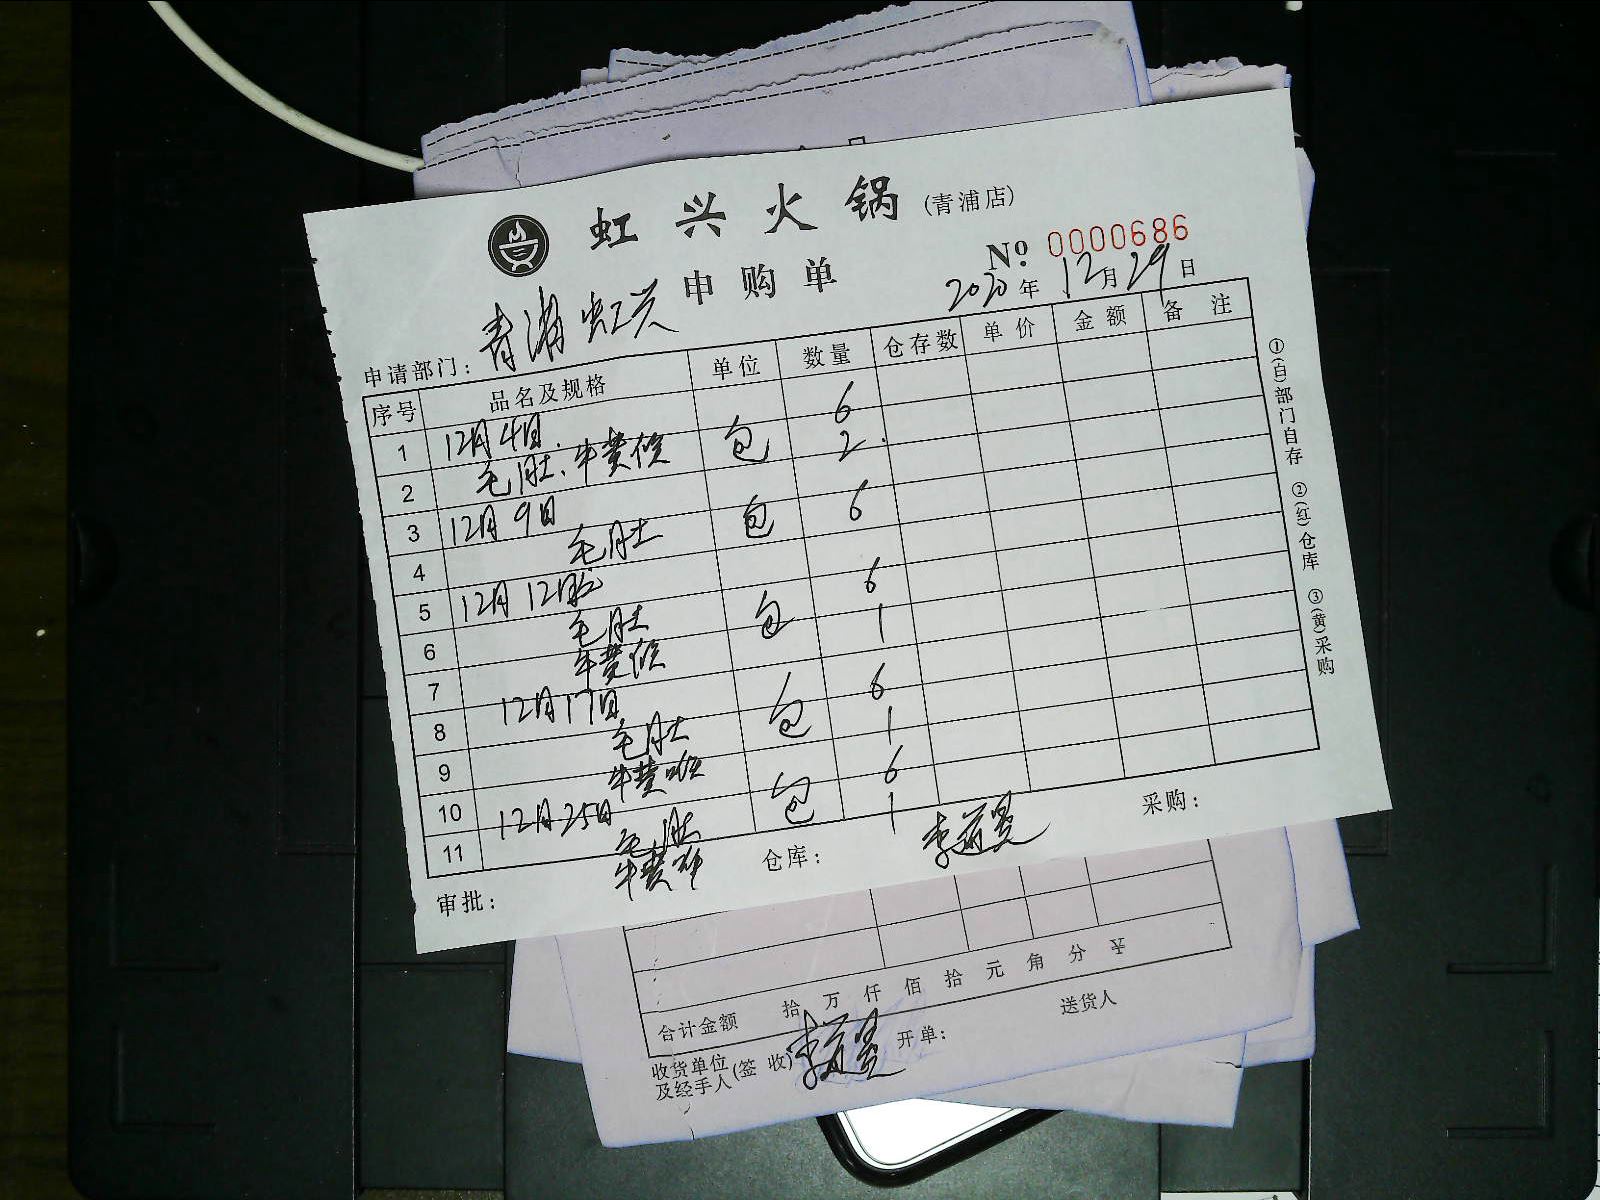 虹兴火锅(青浦店)
申购单
No. 0000686
2020年12月29日
申请部门：青浦虹兴
序号 品名及规格 单位 数量 仓存数 单价 金额 备注
1 12月4日 6
2 毛肚、牛黄喉 包 2
3 12月9日
4 毛肚 包 6
5 12月12日
6 毛肚 包 6
7 牛黄喉 1
8 12月17日
9 毛肚 包 6
10 牛黄喉 1
11 12月25日 包 6
毛肚 1
牛黄喉
审批： 仓库： 采购：
①(白)部门自存 ②(红)仓库 ③(黄)采购
合计金额 拾 万 仟 佰 拾 元 角 分 ¥
收货单位及经手人(签收) 开单： 送货人